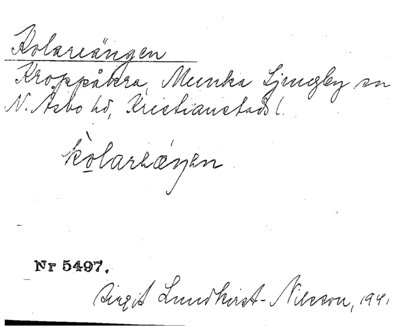 Kolareängen
Kroppåkra, Munka Ljungby sn
N. Åsbo hd, Kristianstads l.
kolareäŋen
Nr 5497.
Birgit Lundkvist-Nilsson, 1941